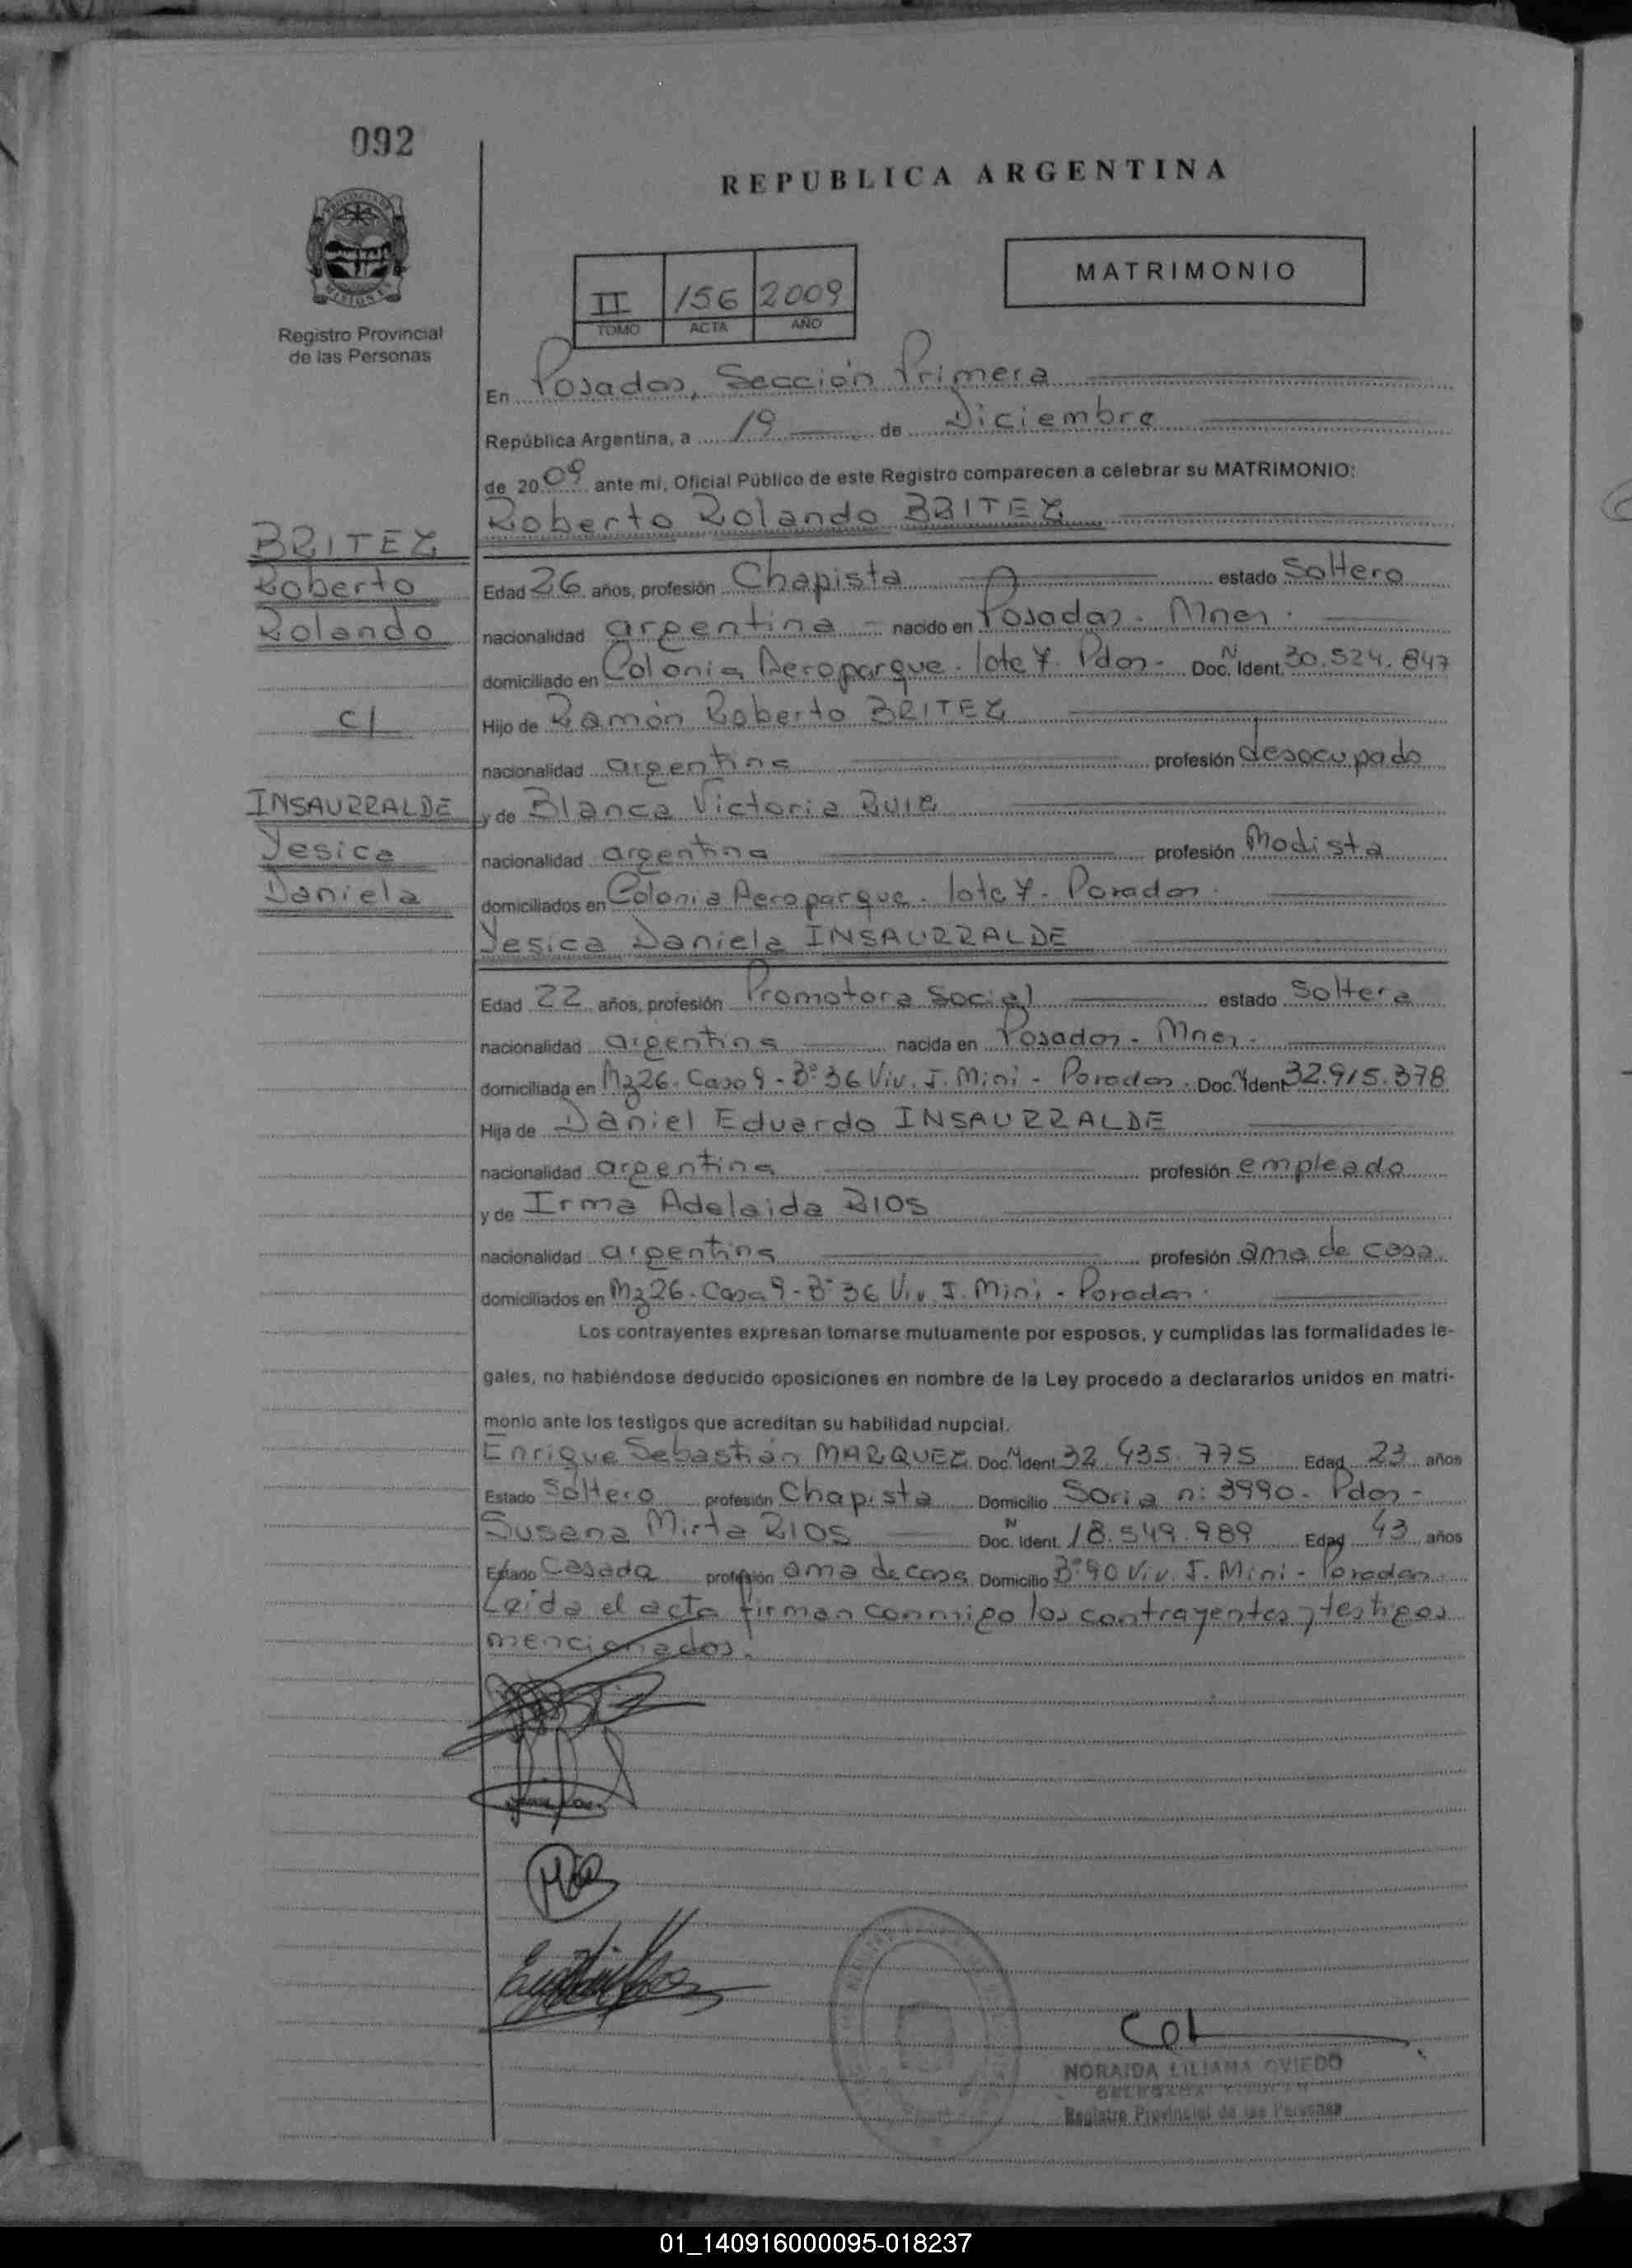 092
REPUBLICA ARGENTINA
MATRIMONIO
II 156 2009
TOMO ACTA AÑO
Registro Provincial
de las Personas
En Posadas, Sección Primera
República Argentina, a 19 de Diciembre
de 2009 ante mi, Oficial Público de este Registro comparecen a celebrar su MATRIMONIO:
Roberto Rolando BRITEZ
BRITEZ
Roberto
Rolando
c/
INSAURRALDE
Yesica
Daniela
Edad 26 años, profesión Chapista estado Soltero
nacionalidad argentina nacido en Posadas - Mnes.
domiciliado en Colonia Aeroparque. lote 7. Pdas - Doc. N Ident. 30.524.847
Hijo de Ramón Roberto BRITEZ
nacionalidad argentina profesión desocupado
y de Blanca Victoria RUIZ
nacionalidad argentina profesión Modista
domiciliados en Colonia Aeroparque. lote 7. Posadas.
Yesica Daniela INSAURRALDE
Edad 22 años, profesión Promotora Social estado Soltera
nacionalidad argentina nacida en Posadas - Mnes.
domiciliada en Mz 26. Casa 9 - B° 36 Viv. I. Mini - Posadas. Doc. N Ident 32.915.378
Hija de Daniel Eduardo INSAURRALDE
nacionalidad argentina profesión empleado
y de Irma Adelaida RIOS
nacionalidad argentina profesión ama de casa.
domiciliados en Mz 26. Casa 9 - B° 36 Viv. I. Mini - Posadas.
Los contrayentes expresan tomarse mutuamente por esposos, y cumplidas las formalidades le-
gales, no habiéndose deducido oposiciones en nombre de la Ley procedo a declararlos unidos en matri-
monio ante los testigos que acreditan su habilidad nupcial.
Enrique Sebastián MARQUEZ Doc. N Ident 32.435.775 Edad 23 años
Estado Soltero profesión Chapista Domicilio Soria n: 3990 - Pdas -
Susana Mirta RIOS Doc. N Ident. 18.549.989 Edad 43 años
Estado Casada profesión ama de casa Domicilio B° 90 Viv. I. Mini - Posadas.
Leída el acta firman conmigo los contrayentes y testigos
mencionados.
NORAIDA LILIANA OVIEDO
Registro Provincial de las Personas
01_140916000095-018237